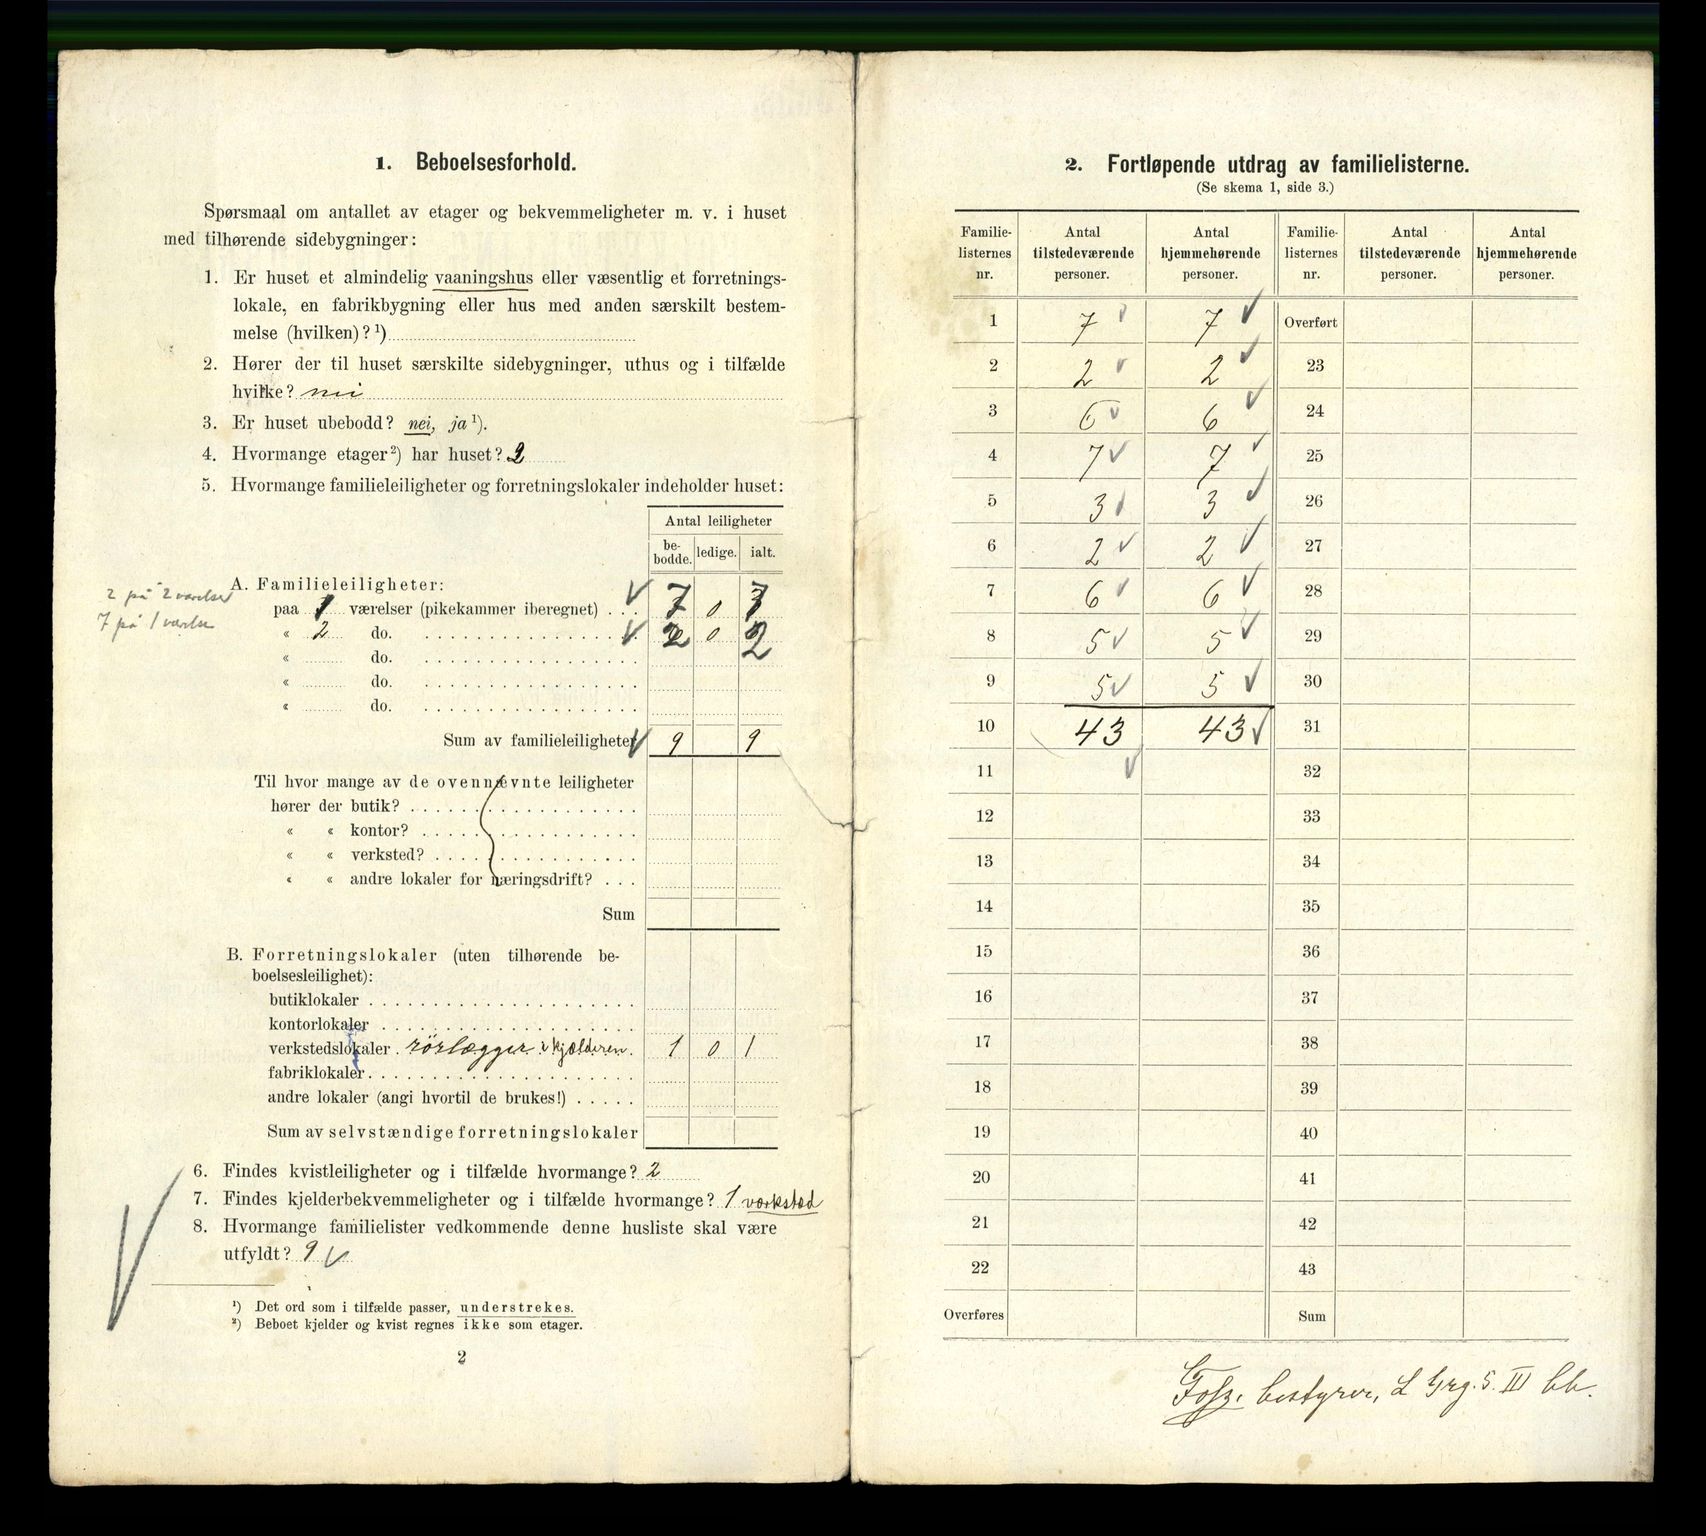 1. Beboelsesforhold.
Spørsmaal om antallet av etager og bekvemmeligheter m. v. i huset
med tilhørende sidebygninger:
1. Er huset et almindelig vaaningshus eller væsentlig et forretnings-
lokale, en fabrikbygning eller hus med anden særskilt bestem-
melse (hvilken)? ¹)
2. Hører der til huset særskilte sidebygninger, uthus og i tilfælde
hvilke? nei
3. Er huset ubebodd? nei, ja ¹).
4. Hvormange etager ²) har huset? 2
5. Hvormange familieleiligheter og forretningslokaler indeholder huset:
Antal leiligheter
be-
bodde. ledige. ialt.
A. Familieleiligheter:
2 på 2 værelser
paa 1 værelser (pikekammer iberegnet) . . . 7 0 7
7 på 1 værelse
« 2 do. 2 0 2
« do.
« do.
« do.
Sum av familieleiligheter 9 9
Til hvor mange av de ovennævnte leiligheter
hører der butik?
« « kontor?
« « verksted?
« « andre lokaler for næringsdrift?
Sum
B. Forretningslokaler (uten tilhørende be-
boelsesleilighet):
butiklokaler
kontorlokaler
verkstedslokaler . rörlægger i kjælderen. 1 0 1
fabriklokaler
andre lokaler (angi hvortil de brukes!)
Sum av selvstændige forretningslokaler
6. Findes kvistleiligheter og i tilfælde hvormange? 2
7. Findes kjelderbekvemmeligheter og i tilfælde hvormange? 1 værksted
8. Hvormange familielister vedkommende denne husliste skal være
utfyldt? 9
¹) Det ord som i tilfælde passer, understrekes.
²) Beboet kjelder og kvist regnes ikke som etager.
2
2. Fortløpende utdrag av familielisterne.
(Se skema 1, side 3.)
Familie-
listernes
nr.
Antal
tilstedeværende
personer.
Antal
hjemmehørende
personer.
Familie-
listernes
nr.
Antal
tilstedeværende
personer.
Antal
hjemmehørende
personer.
1 7 7 Overført
2 2 2 23
3 6 6 24
4 7 7 25
5 3 3 26
6 2 2 27
7 6 6 28
8 5 5 29
9 5 5 30
10 43 43 31
11 32
12 33
13 34
14 35
15 36
16 37
17 38
18 39
19 40
20 41
21 42
22 43
Overføres Sum
bestyrer, L Grg. 5. III